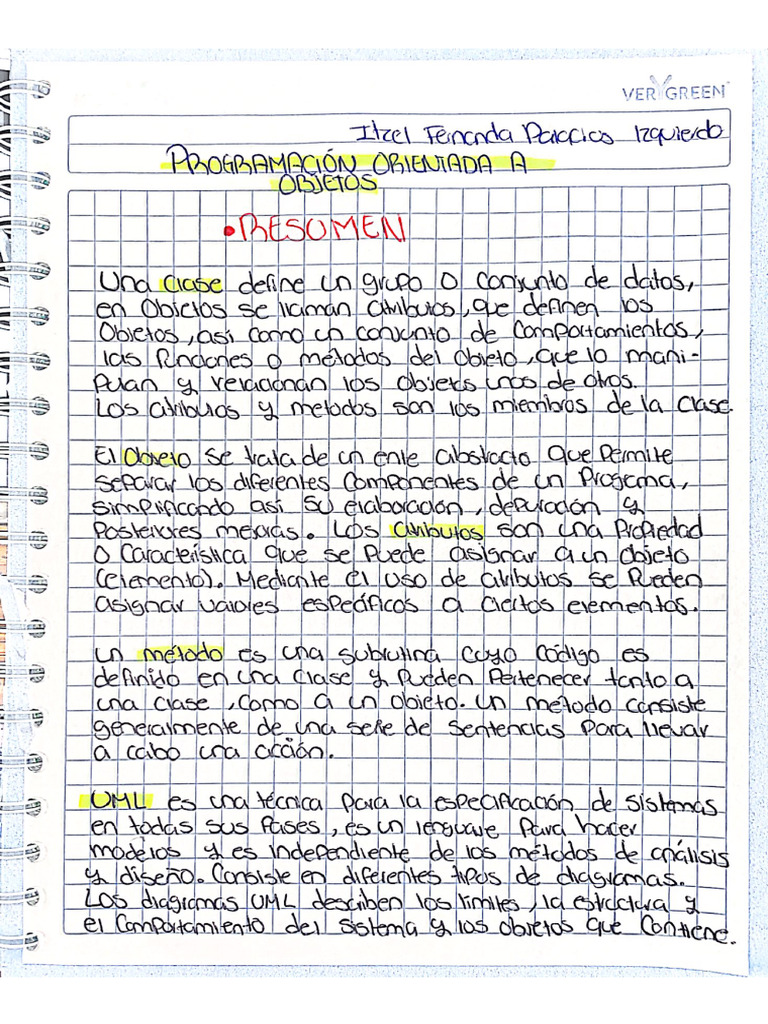 VERYGREEN
Itzel Fernanda Palacios Izquierdo
PROGRAMACIÓN ORIENTADA A
OBJETOS
• RESUMEN
Una clase define un grupo o conjunto de datos,
en Objetos se llaman atributos, que definen los
Objetos, así como un conjunto de comportamientos,
las funciones o métodos del objeto, que lo mani-
pulan y relacionan los objetos unos de otros.
Los atributos y metodos son los miembros de la clase.
El Objeto se trata de un ente abstracto que permite
separar los diferentes componentes de un Programa,
simplificando así su elaboración, depuración y
Posteriores mejoras. Los atributos son una Propiedad
o Característica que se puede asignar a un objeto
(elemento). Mediante el uso de atributos se Pueden
asignar valores específicos a ciertos elementos.
Un método es una subrutina cuyo código es
definido en una clase y pueden Pertenecer tanto a
una clase, como a un objeto. Un método consiste
generalmente de una serie de sentencias para llevar
a cabo una acción.
UML es una técnica para la especificación de sistemas
en todas sus fases, es un lenguaje para hacer
modelos y es independiente de los métodos de análisis
y diseño. Consiste en diferentes tipos de diagramas.
Los diagramas UML describen los límites, la estructura y
el comportamiento del sistema y los objetos que contiene.